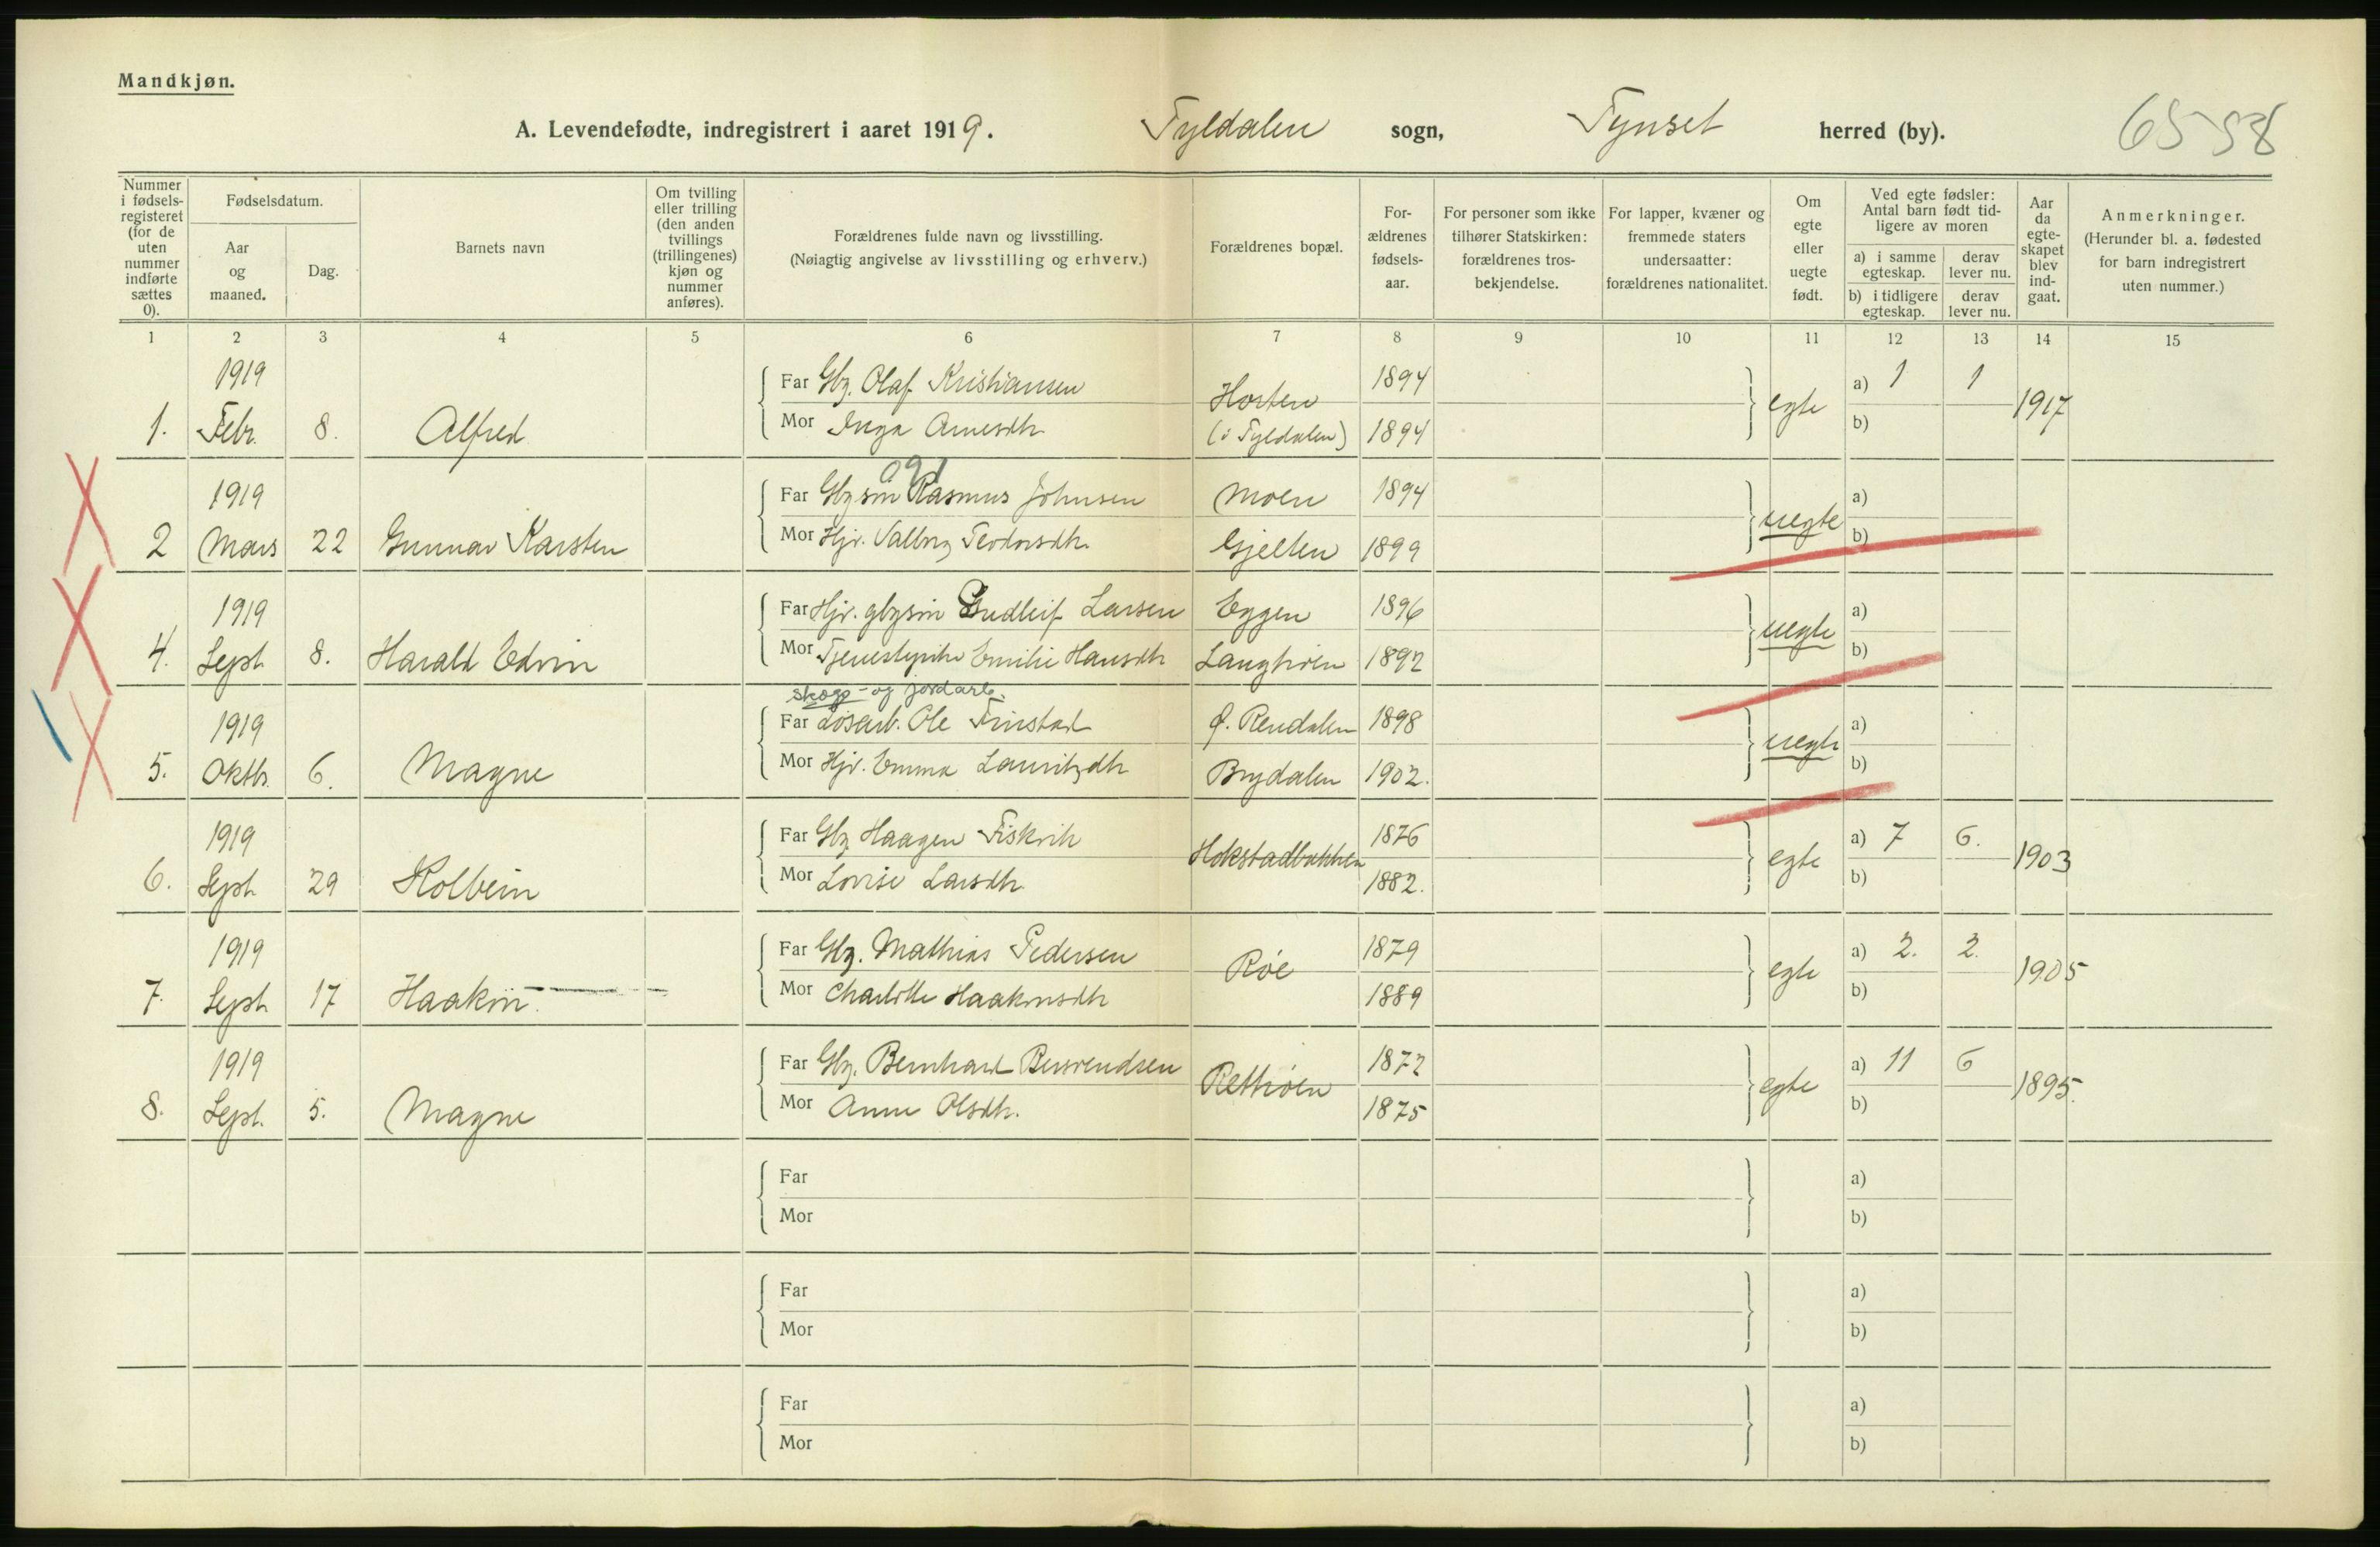 Mandkjøn.
A. Levendefødte, indregistrert i aaret 1919. Tyldalen sogn, Tynset herred (by). 6558
Nummer i fødsels-registeret (for de uten nummer indførte sættes 0).
Fødselsdatum.
Aar og maaned.
Dag.
Barnets navn
Om tvilling eller trilling (den anden tvillings (trillingenes) kjøn og nummer anføres).
Forældrenes fulde navn og livsstilling.
(Nøiagtig angivelse av livsstilling og erhverv.)
Forældrenes bopæl.
For-ældrenes fødsels-aar.
For personer som ikke tilhører Statskirken: forældrenes tros-bekjendelse.
For lapper, kvæner og fremmede staters undersaatter: forældrenes nationalitet.
Om egte eller uegte født.
Ved egte fødsler: Antal barn født tid-ligere av moren
a) i samme egteskap.
derav lever nu.
b) i tidligere egteskap.
derav lever nu.
Aar da egte-skapet blev ind-gaat.
Anmerkninger.
(Herunder bl. a. fødested for barn indregistrert uten nummer.)
1 2 3 4 5 6 7 8 9 10 11 12 13 14 15
1919 Far Gbr. Olaf Kristiansen 1894 a) 1 1
1. Febr. 8. Alfred Mor Inga Arnesdtr. Horten (i Tyldalen) 1894 egte b) 1917
1919 Far Gbr søn Rasmus Johnsen Moen 1894 a)
2 Mars 22 Gunnar Karsten Mor Hjr. Valborg Teodorsdtr. Gjelten 1899 uegte b)
1919 Far Hjr. gbrsøn Gudleif Larsen Eggen 1896 a)
4. Sept. 8. Harald Edvin Mor Emilie Hansdtr Langhøen 1892 uegte b)
skogs- og jordarb.
1919 Far Løsarb. Ole Finstad Ø. Rendalen 1898 a)
5. Oktb. 6. Magne Mor Hjr. Emma Lauritzdtr Brydalen 1902. uegte b)
1919 Far Gbr Haagen Fiskvik 1876 a) 7 6.
6. Sept. 29 Kolbein Mor Lovise Larsdtr. Hokstadbakken 1882. egte b) 1903
1919 Far Gbr. Mathias Pedersen 1879 a) 2. 2.
7. Sept. 17 Haakon Mor Charlotte Haakonsdtr Røe 1889 egte b) 1905
1919 Far Gbr. Bernhard 1872 a) 11 6
8. Sept. 5. Magne Mor Anne Olsdtr. Rethøen 1875 egte b) 1895.
Far a)
Mor b)
Far a)
Mor b)
Far a)
Mor b)